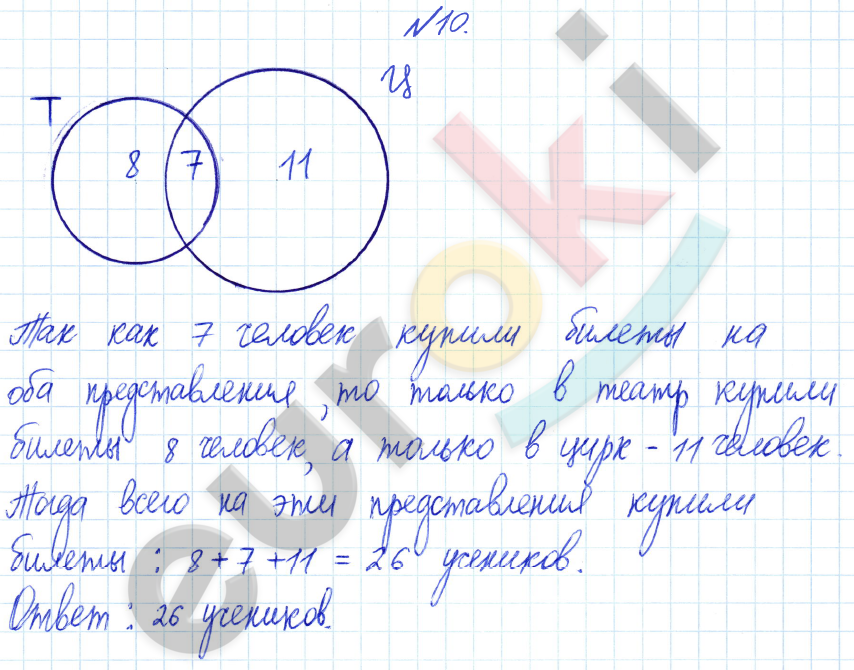 №10.
Ц
Т
8 7 11
Так как 7 человек купили билеты на
оба представления, то только в театр купили
билеты 8 человек, а только в цирк - 11 человек.
Тогда всего на эти представления купили
билеты: 8+7+11 = 26 учеников.
Ответ: 26 учеников.
euroki